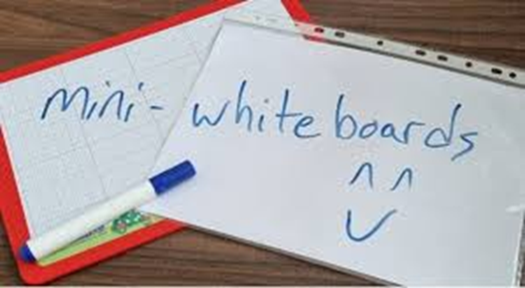 mini-whiteboards
^ ^